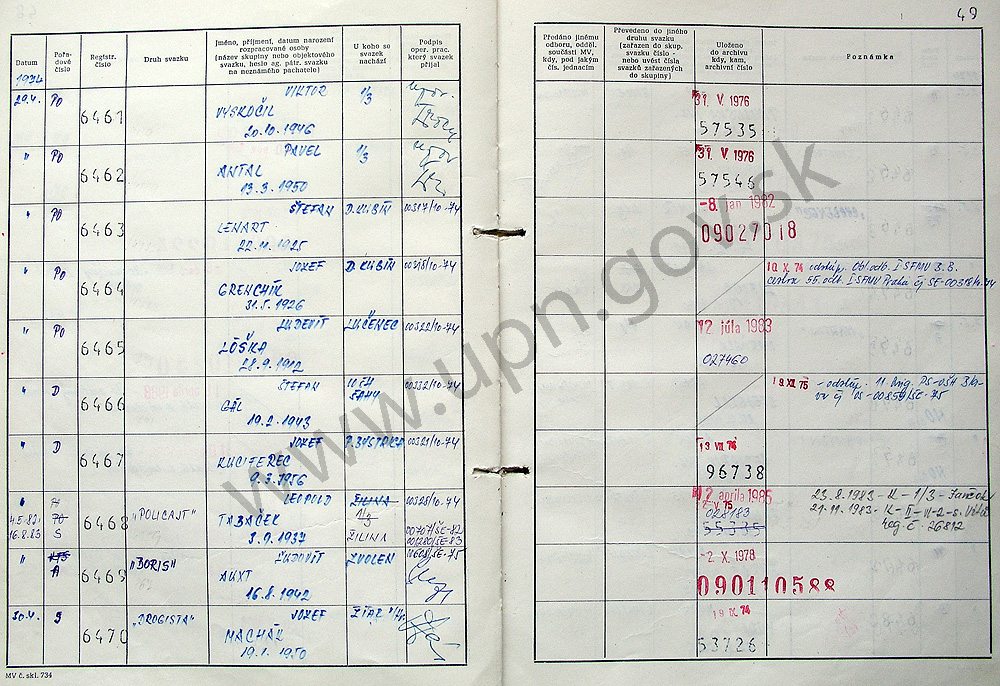 49
Datum
Pořadové číslo
Registr. číslo
Druh svazku
Jméno, příjmení, datum narození rozpracované osoby (název skupiny nebo objektového svazku, heslo ag. pátr. svazku na neznámého pachatele)
U koho se svazek nachází
Podpis oper. prac. který svazek přijal
Předáno jinému odboru, odděl. součásti MV, kdy, pod jakým čís. jednacím
Převedeno do jiného druhu svazku (zařazen do skup. svazku číslo - nebo uvést čísla svazků zařazených do skupiny)
Uloženo do archivu kdy, kam, archivní číslo
Poznámka
1974
29.4. PO 6461 VIKTOR 1/3
VYSKOČIL
20.10.1946
31. V. 1976
57535
" PO 6462 PAVEL 1/3
ANTAL
13.3.1950
31. V. 1976
57546
" PO 6463 ŠTEFAN D.KUBÍN 00317/10-74
LENART
22.11.1925
-8. jan 1982
09027018
" PO 6464 JOZEF D.KUBÍN 00318/10-74
GRENCHÍK
31.5.1926
10. X. 74 odstúp. Obl.odb. I SFMV 3.B.
cestou 55.odb. I SFMV Praha čj SE-00318/10-74
" PO 6465 ĽUDEVÍT LUČENEC 00322/10-74
LÔŠKA
28.9.1912
12 júla 1983
027460
" D 6466 ŠTEFAN 00332/10-74
GÁL ŠAHY
19.2.1943
19. XII. 75 - odstúp. 11 brig. PS-OŠH
čj OS-00859/SE-75
" D 6467 JOZEF P.BYSTRICA 00321/10-74
KUCIFEREC
9.3.1956
13. VII. 74
96738
" 6468 "POLICAJT" LEOPOLD ŽILINA 00328/10-74
4.5.82. PO TABAČEK 1/3 00707/ŠE-82
16.8.83 S 3.9.1937 ŽILINA 001280/ŠE-83
2 apríla 1985
028183
55335
23.8.1983 - K - 1/3 -
21.11.1983 - K - II -
reg. č. 26812
" KTS 6469 "BORIS" ĽUDOVÍT ZVOLEN 00608/ŠE-75
A AUXT
16.8.1942
-2. X. 1978
090110588
30.4. S 6470 "DROGISTA" JOZEF ŽIAR n/Hr.
MACHÁK
19.1.1950
19. IX. 74
53726
MV č. skl. 734
www.upn.gov.sk